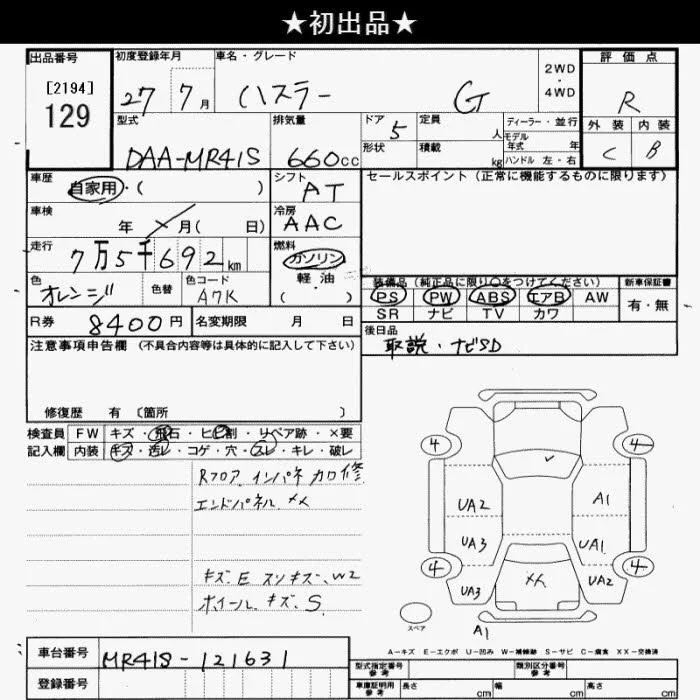 ★初出品★
出品番号
[2194]
129
初度登録年月
27 7月
車名・グレード
ハスラー G
2WD
・
4WD
評価点
R
外装 内装
C B
型式
DAA-MR41S
排気量
660cc
ドア 5
形状
定員 人
積載 kg
ディーラー・並行
モデル
年式 年
ハンドル 左・右
車歴
自家用・( )
シフト
AT
セールスポイント(正常に機能するものに限ります)
車検
年 月( 日)
冷房
AAC
走行
7万5千692km
燃料
ガソリン
軽・油
( )
色
オレンジ
色替
色コード
A7K
装備品(純正品に限り○をつけてください)
PS PW ABS エアB AW
SR ナビ TV カワ
新車保証書
有・無
R券 8400円
名変期限 月 日
後日品
取説・ナビSD
注意事項申告欄(不具合内容等は具体的に記入して下さい)
修復歴 有 〔箇所 〕
検査員
記入欄
FW キズ・飛石・ヒビ割・リペア跡・×要
内装 キズ・汚レ・コゲ・穴・スレ・キレ・破レ
Rフロア インパネ カロ修
エンドパネル XX
キズ、E スリキズ、W2
ホイール キズ、S
4 4
UA2 A1
UA3 UA1
4 4
UA3 XX UA2
スペア
A1
A-キズ E-エクボ U-凹み W-補修跡 S-サビ C-腐食 XX-交換済
車台番号
MR41S-121631
登録番号
型式指定番号
参考
類別区分番号
参考
車庫証明用
参考
長さ cm
幅 cm
高さ cm